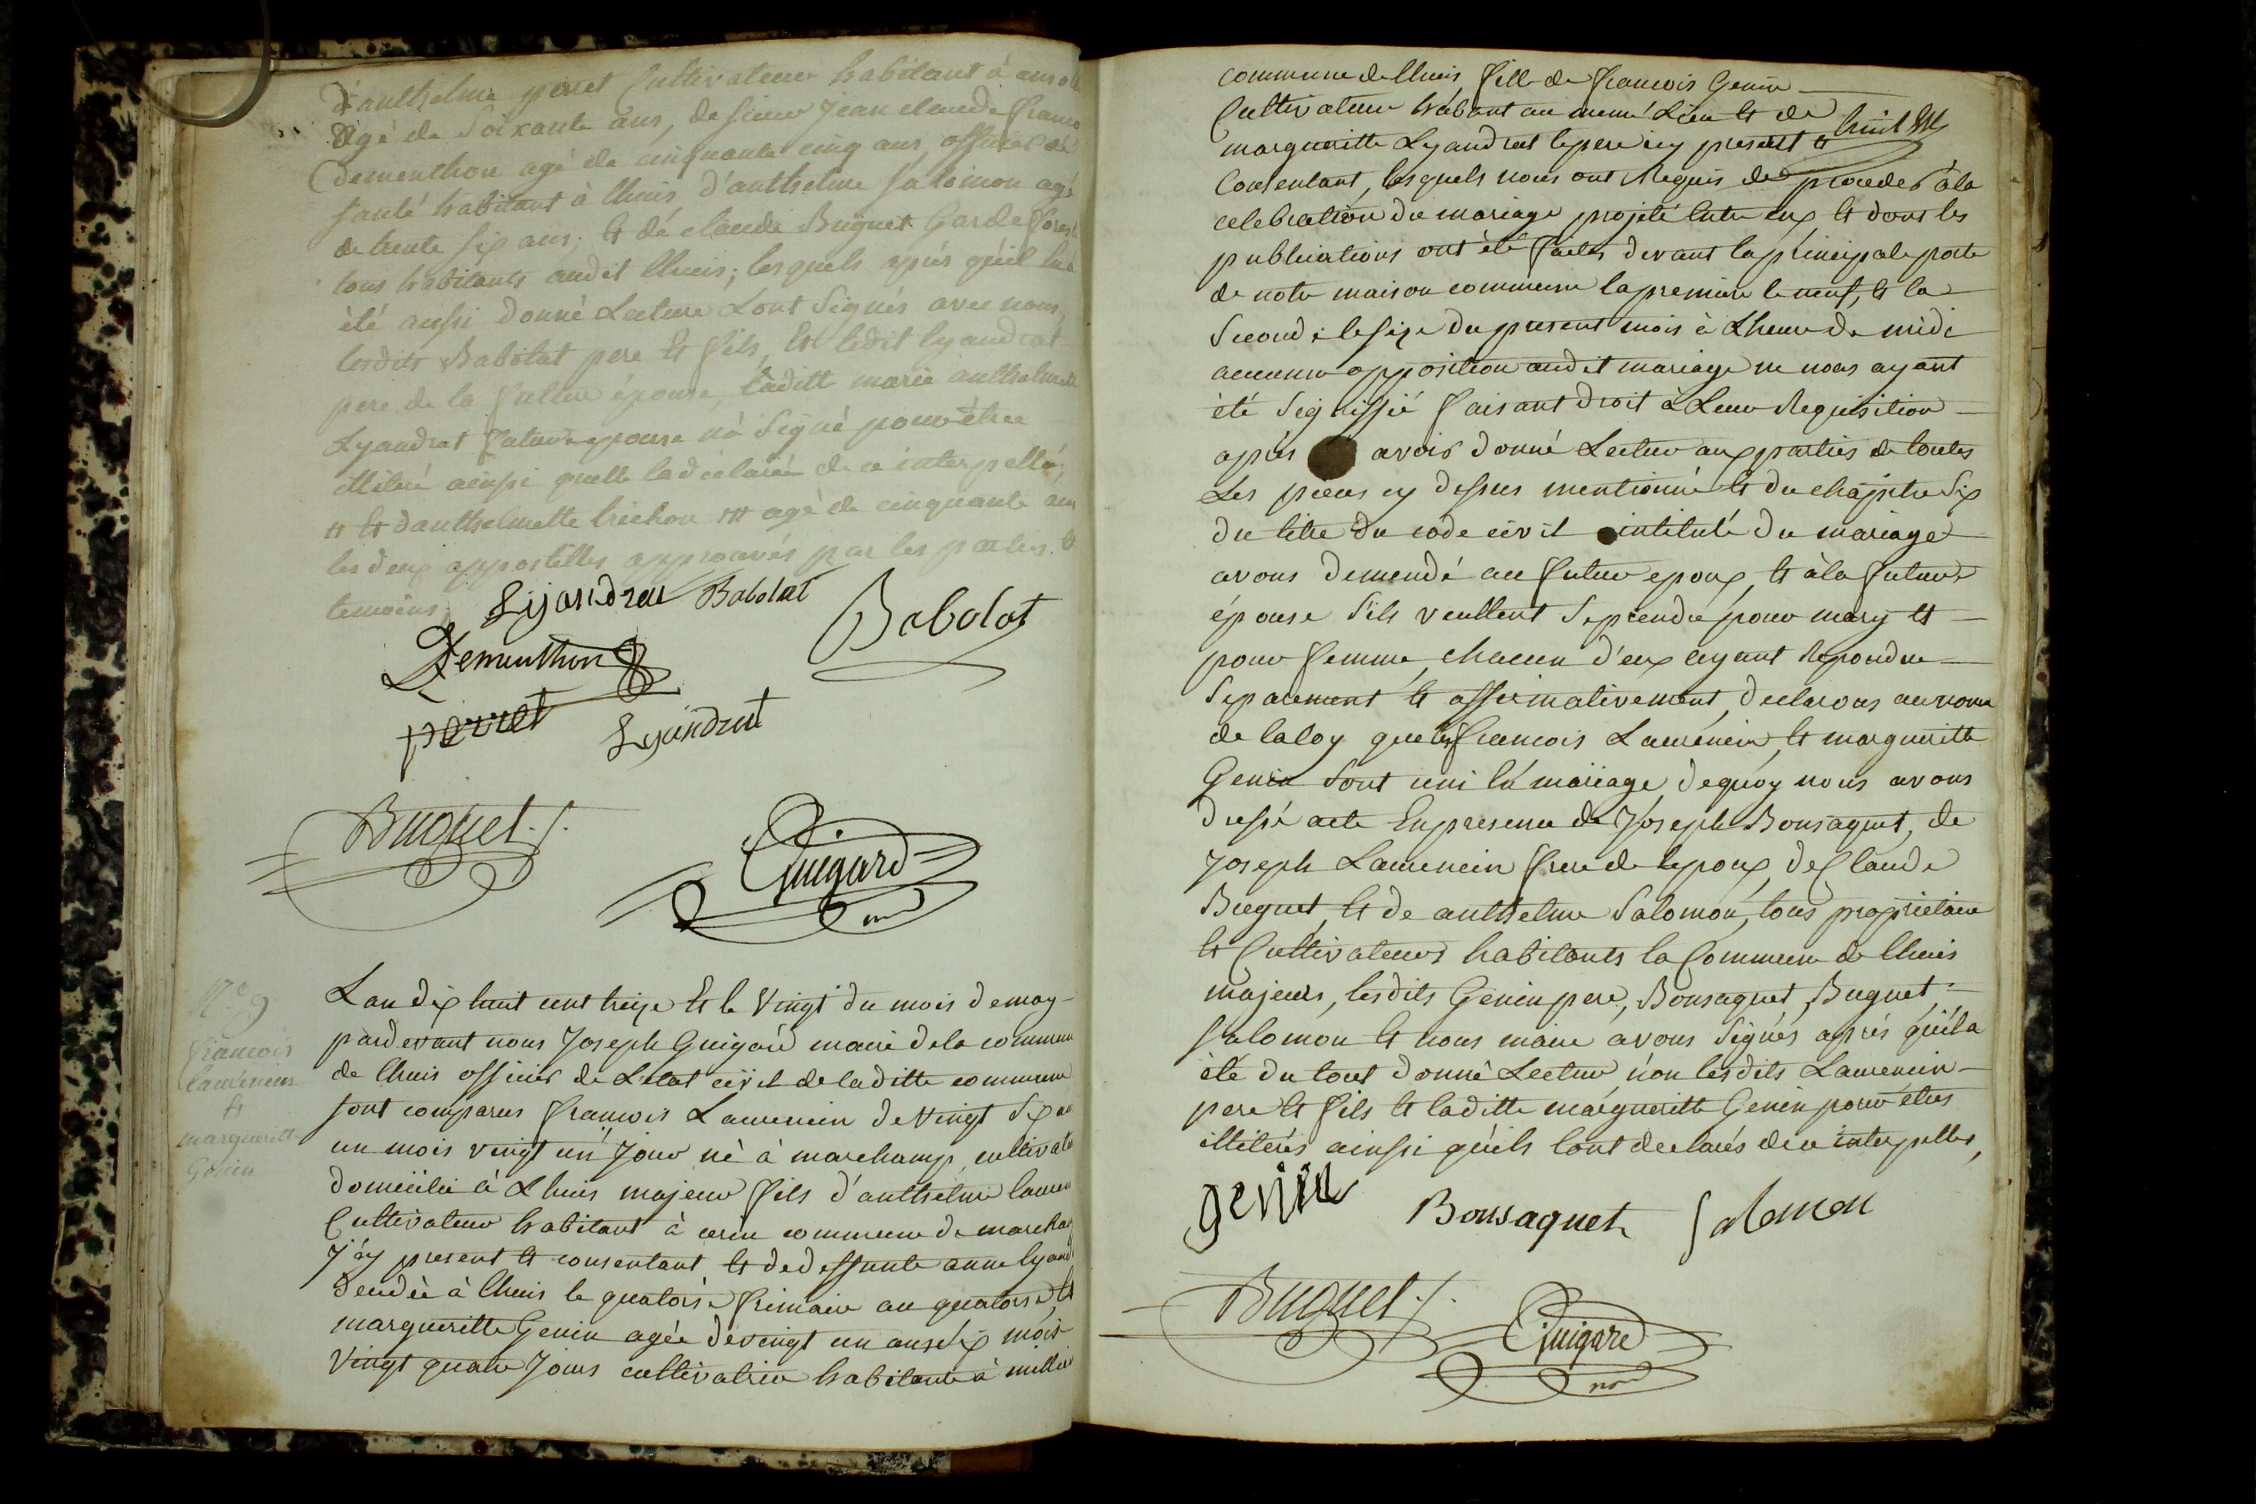 d'anthelme perret Cultivateur habitant à
âgé de Soixante ans, de sieur Jean claude
Dementhon agé de cinquante cinq ans, officier de
santé habitant à lhuis, d'anthelme Salomon agé
de trente six ans; et de claude Buguet Garde
tous habitants audit lhuis; lesquels après qu'il
été aussi donné Lecture Lont Signés avec nous,
lesdits Babolat pere et fils, et ledit lyandrat
pere de la future épouse, laditte marie anthelmette
Lyandrat future epouse n'a Signé pour être
illiteré ainsi quelle la déclaré de ce interpellé,
# et danthelmette trichon ## agé de cinquante ans
les deux appostilles approuvés par les parties et
temoins;
Lyandrat Babolat
Babolat
Dementhon
perret Lyandrat
Buguet
Guigard
N.º 9
francois
laurencin
et
margueritte
Genin
Lan dix huit cent treize et le Vingt du mois de may
pardevant nous Joseph Guigard maire de la commune
de lhuis officier de Létat civil de laditte commune
sont comparus francois Laurencin de Vingt Six
un mois vingt un Jour né à marchamp, cultivateur
domicilié à Lhuis majeur fils d'anthelme
Cultivateur habitant à cerin commune de
J'cy present et consentant et de deffunte anne
Decedée à lhuis le quatorse frimaire an quatorse, et
margueritte Genin agée de vingt un ans six mois
Vingt quatre Jours cultivatrice habitante à
commune de lhuis fille de francois Genin
Cultivateur habitant au meme Lieu et de
margueritte Lyandrat le pere icy present et
Consentant, lesquels nous ont Requis de proceder à la
celebration du mariage projeté entre eux et dont les
publications ont été faites devant la principale porte
de notre maison commune la premiere le neuf, et la
Seconde le seize du present mois à Lheure de midi
aucune opposition audit mariage ne nous ayant
été Signiffié faisant droit à Leur Requisition
après avoir donné Lecture aux parties de toutes
Les pieces cy dessus mentionné et du chapitre Six
du titre du code civil intitulé du mariage
avons demendé au futur epoux, et à la future
épouse S'ils veullent Seprendre pour mary et
pour femme, chacun d'eux ayant Repondue
Separement et affirmativement, declarons au nom
de la loy que francois Laurencin, et margueritte
Genin Sont uni en mariage, dequoy nous avons
dressé acte En presence de Joseph Bonsaquet, de
Joseph Laurencin frere de lepoux, de Claude
Buguet, et de anthelme Salomon, tous proprietaire
et Cultivateurs habitants la Commune de lhuis
majeurs, lesdits Genin pere, Bonsaquet, Buguet,
Salomon et nous maire avons Signés après qu'il a
été du tout donné Lecture, non lesdits Laurencin
pere et fils et laditte margueritte Genin pour etres
illiterés ainsi qu'ils lont declarés de ce interpellés,
genin Bonsaquet Salomon
Buguet
Guigard